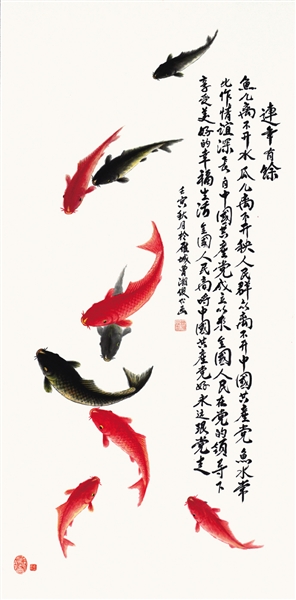 連年有餘
魚儿離不开水瓜儿離不开秧人民群众離不开中國共產党魚水常
比作情誼深長自中國共產党成立以来全國人民在党的領导下
享受美好的幸福生活全國人民高呼中國共產党好永远跟党走
壬寅秋月於雁城曹湘